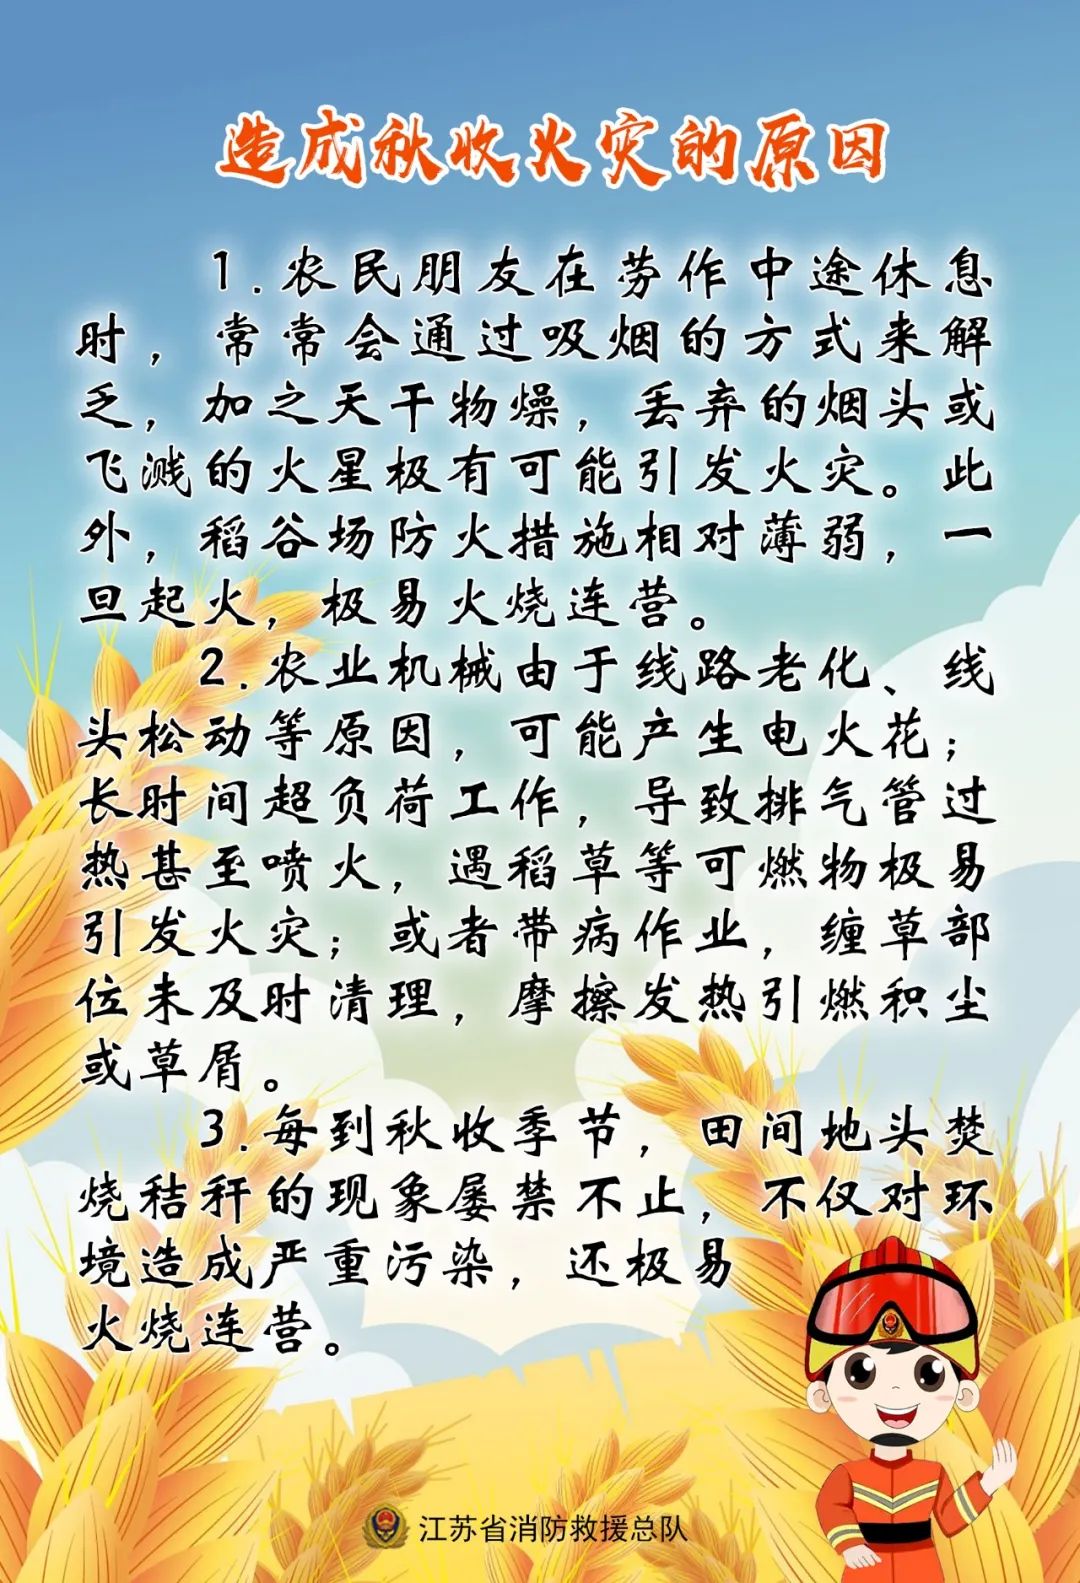 造成秋收火灾的原因
1.农民朋友在劳作中途休息
时，常常会通过吸烟的方式来解
乏，加之天干物燥，丢弃的烟头或
飞溅的火星极有可能引发火灾。此
外，稻谷场防火措施相对薄弱，一
旦起火，极易火烧连营。
2.农业机械由于线路老化、线
头松动等原因，可能产生电火花；
长时间超负荷工作，导致排气管过
热甚至喷火，遇稻草等可燃物极易
引发火灾；或者带病作业，缠草部
位未及时清理，摩擦发热引燃积尘
或草屑。
3.每到秋收季节，田间地头焚
烧秸秆的现象屡禁不止，不仅对环
境造成严重污染，还极易
火烧连营。
江苏省消防救援总队